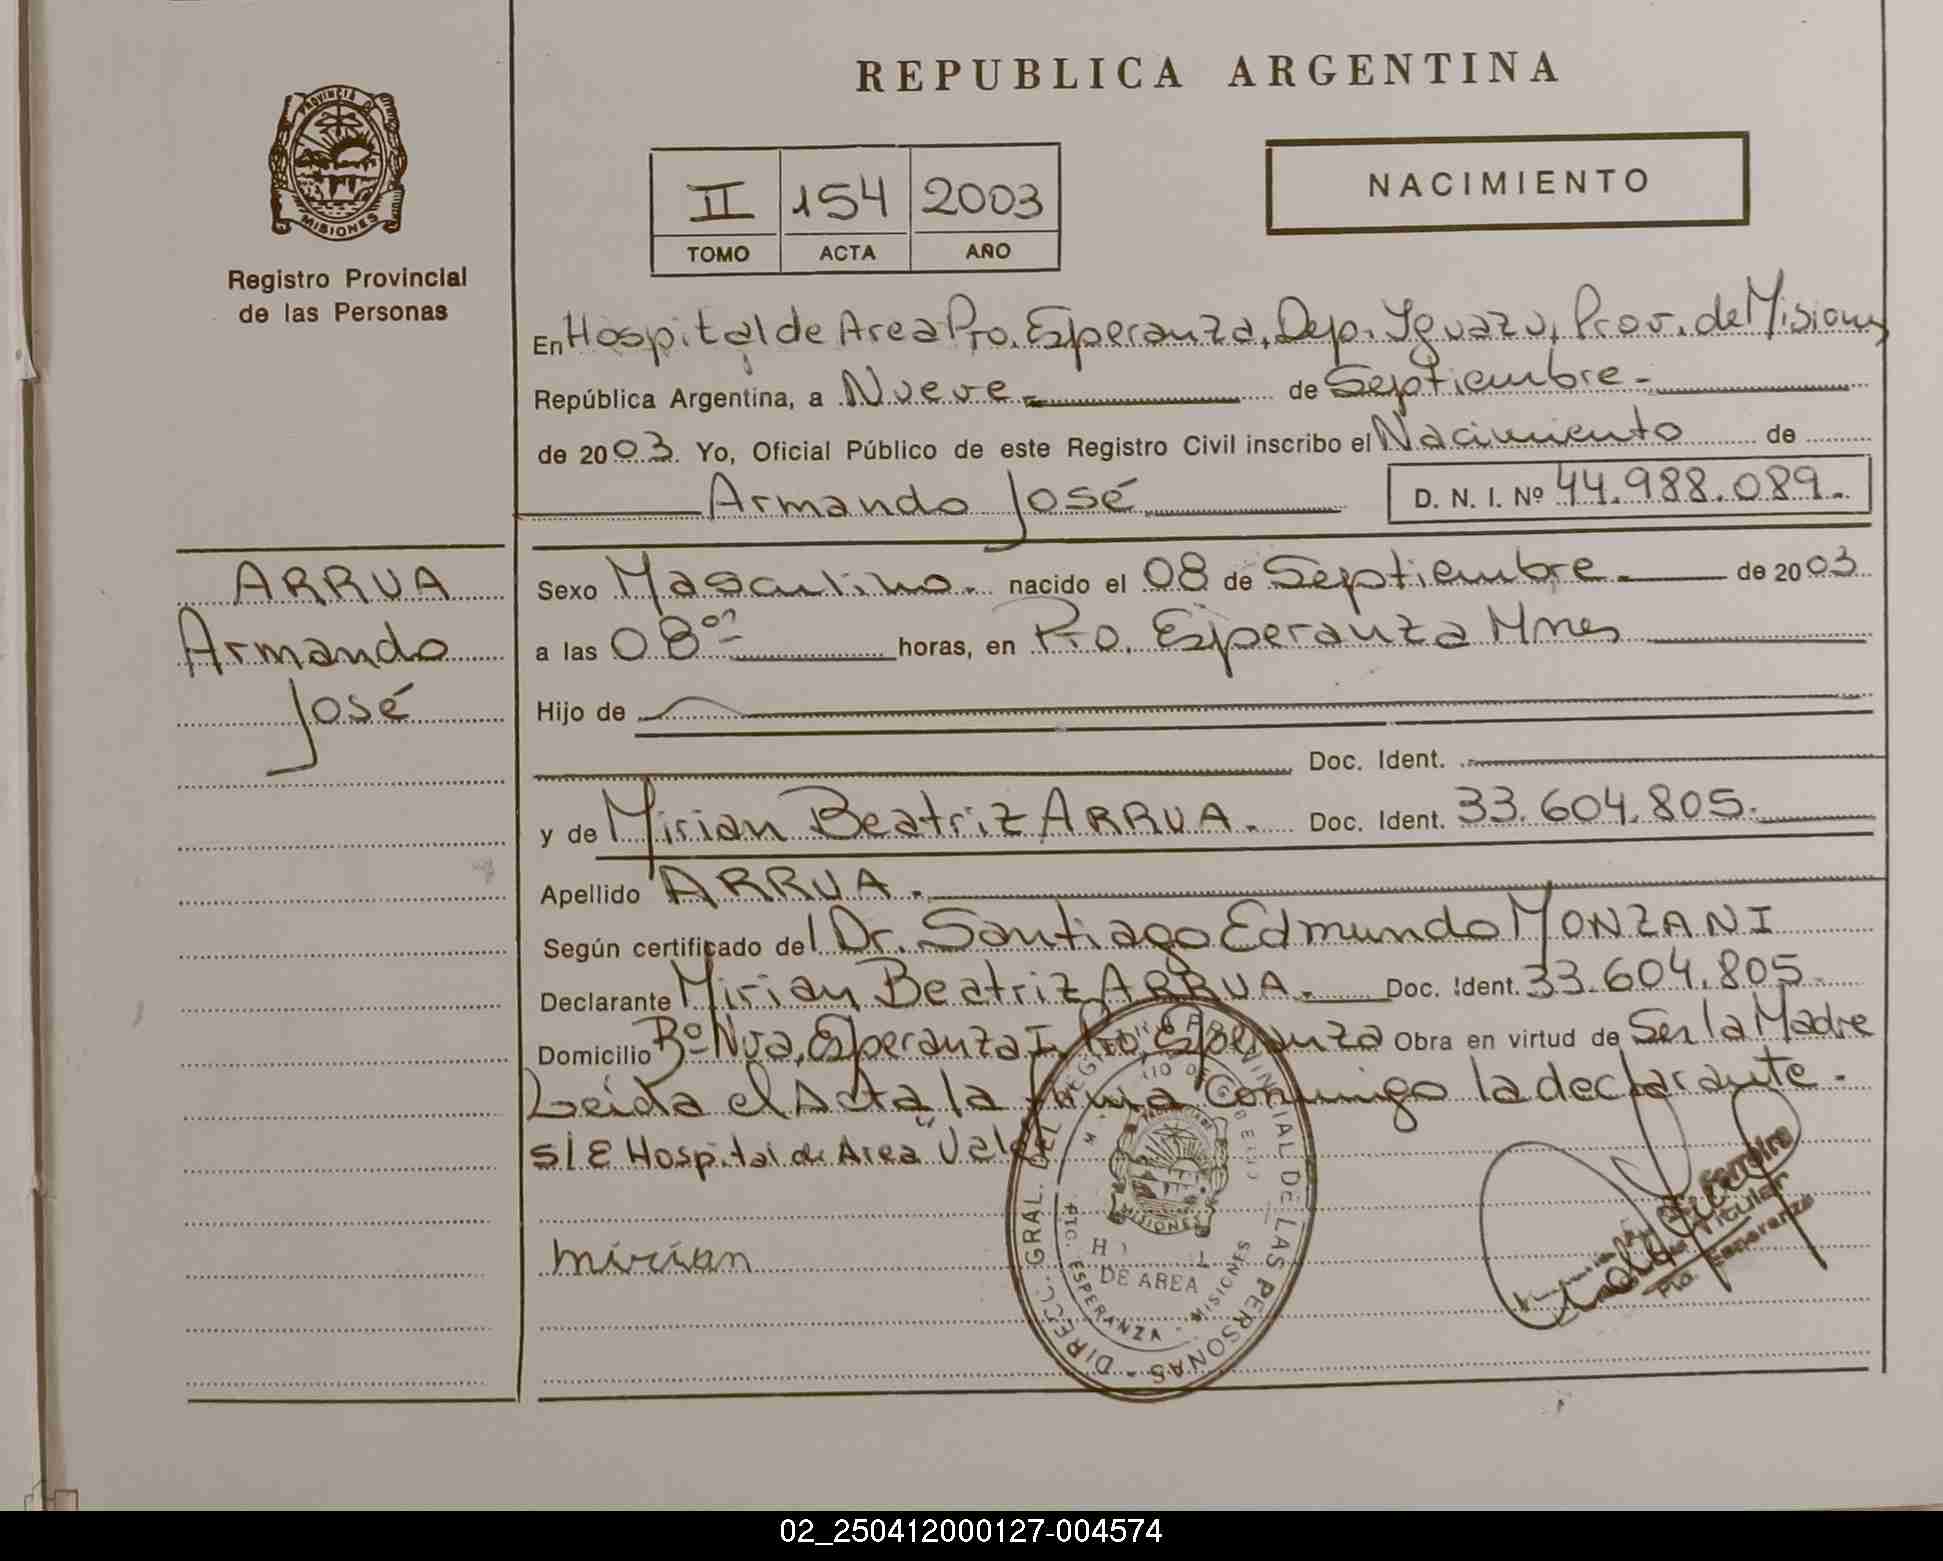 REPUBLICA ARGENTINA
PROVINCIA D
MISIONES
Registro Provincial
de las Personas
II 154 2003
TOMO ACTA AÑO
NACIMIENTO
En Hospital de Area Pto. Esperanza, Dep. Iguazu, Prov. de Misiones
República Argentina, a Nueve de Septiembre.
de 2003. Yo, Oficial Público de este Registro Civil inscribo el Nacimiento de
Armando José D. N. I. Nº 44.988.089.
ARRUA
Armando
José
Sexo Masculino. nacido el 08 de Septiembre. de 2003
a las 08 horas, en Pto. Esperanza Mnes
Hijo de
Doc. Ident.
y de Mirian Beatriz ARRUA. Doc. Ident. 33.604.805.
Apellido ARRUA.
Según certificado del Dr. Santiago Edmundo MONZANI
Declarante Mirian Beatriz ARRUA. Doc. Ident. 33.604.805.
Domicilio Bº Nva. Esperanza I Pto. Esperanza Obra en virtud de Ser la Madre
Leída el Acta la firma Conmigo la declarante.
S/E Hospital de Area "Vale
mirian
DIRECC. GRAL. DEL REG PROVINCIAL DE LAS PERSONAS
MISIONES
DE AREA
PTO. ESPERANZA - MISIONES
Titular
Pto. Esperanza
02_250412000127-004574